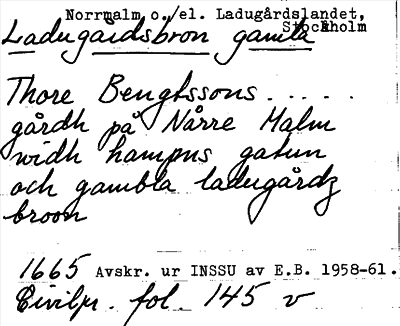 Norrmalm o./el. Ladugårdslandet,
Stockholm
Ladugårdsbron gamla
Thore Bengtssons . . . . .
gårdh på Nårre Malm
widh hampns gatun
och gambla ladugårdz
broon
1665 Avskr. ur INSSU av E.B. 1958-61.
Civilpr. fol. 145 v